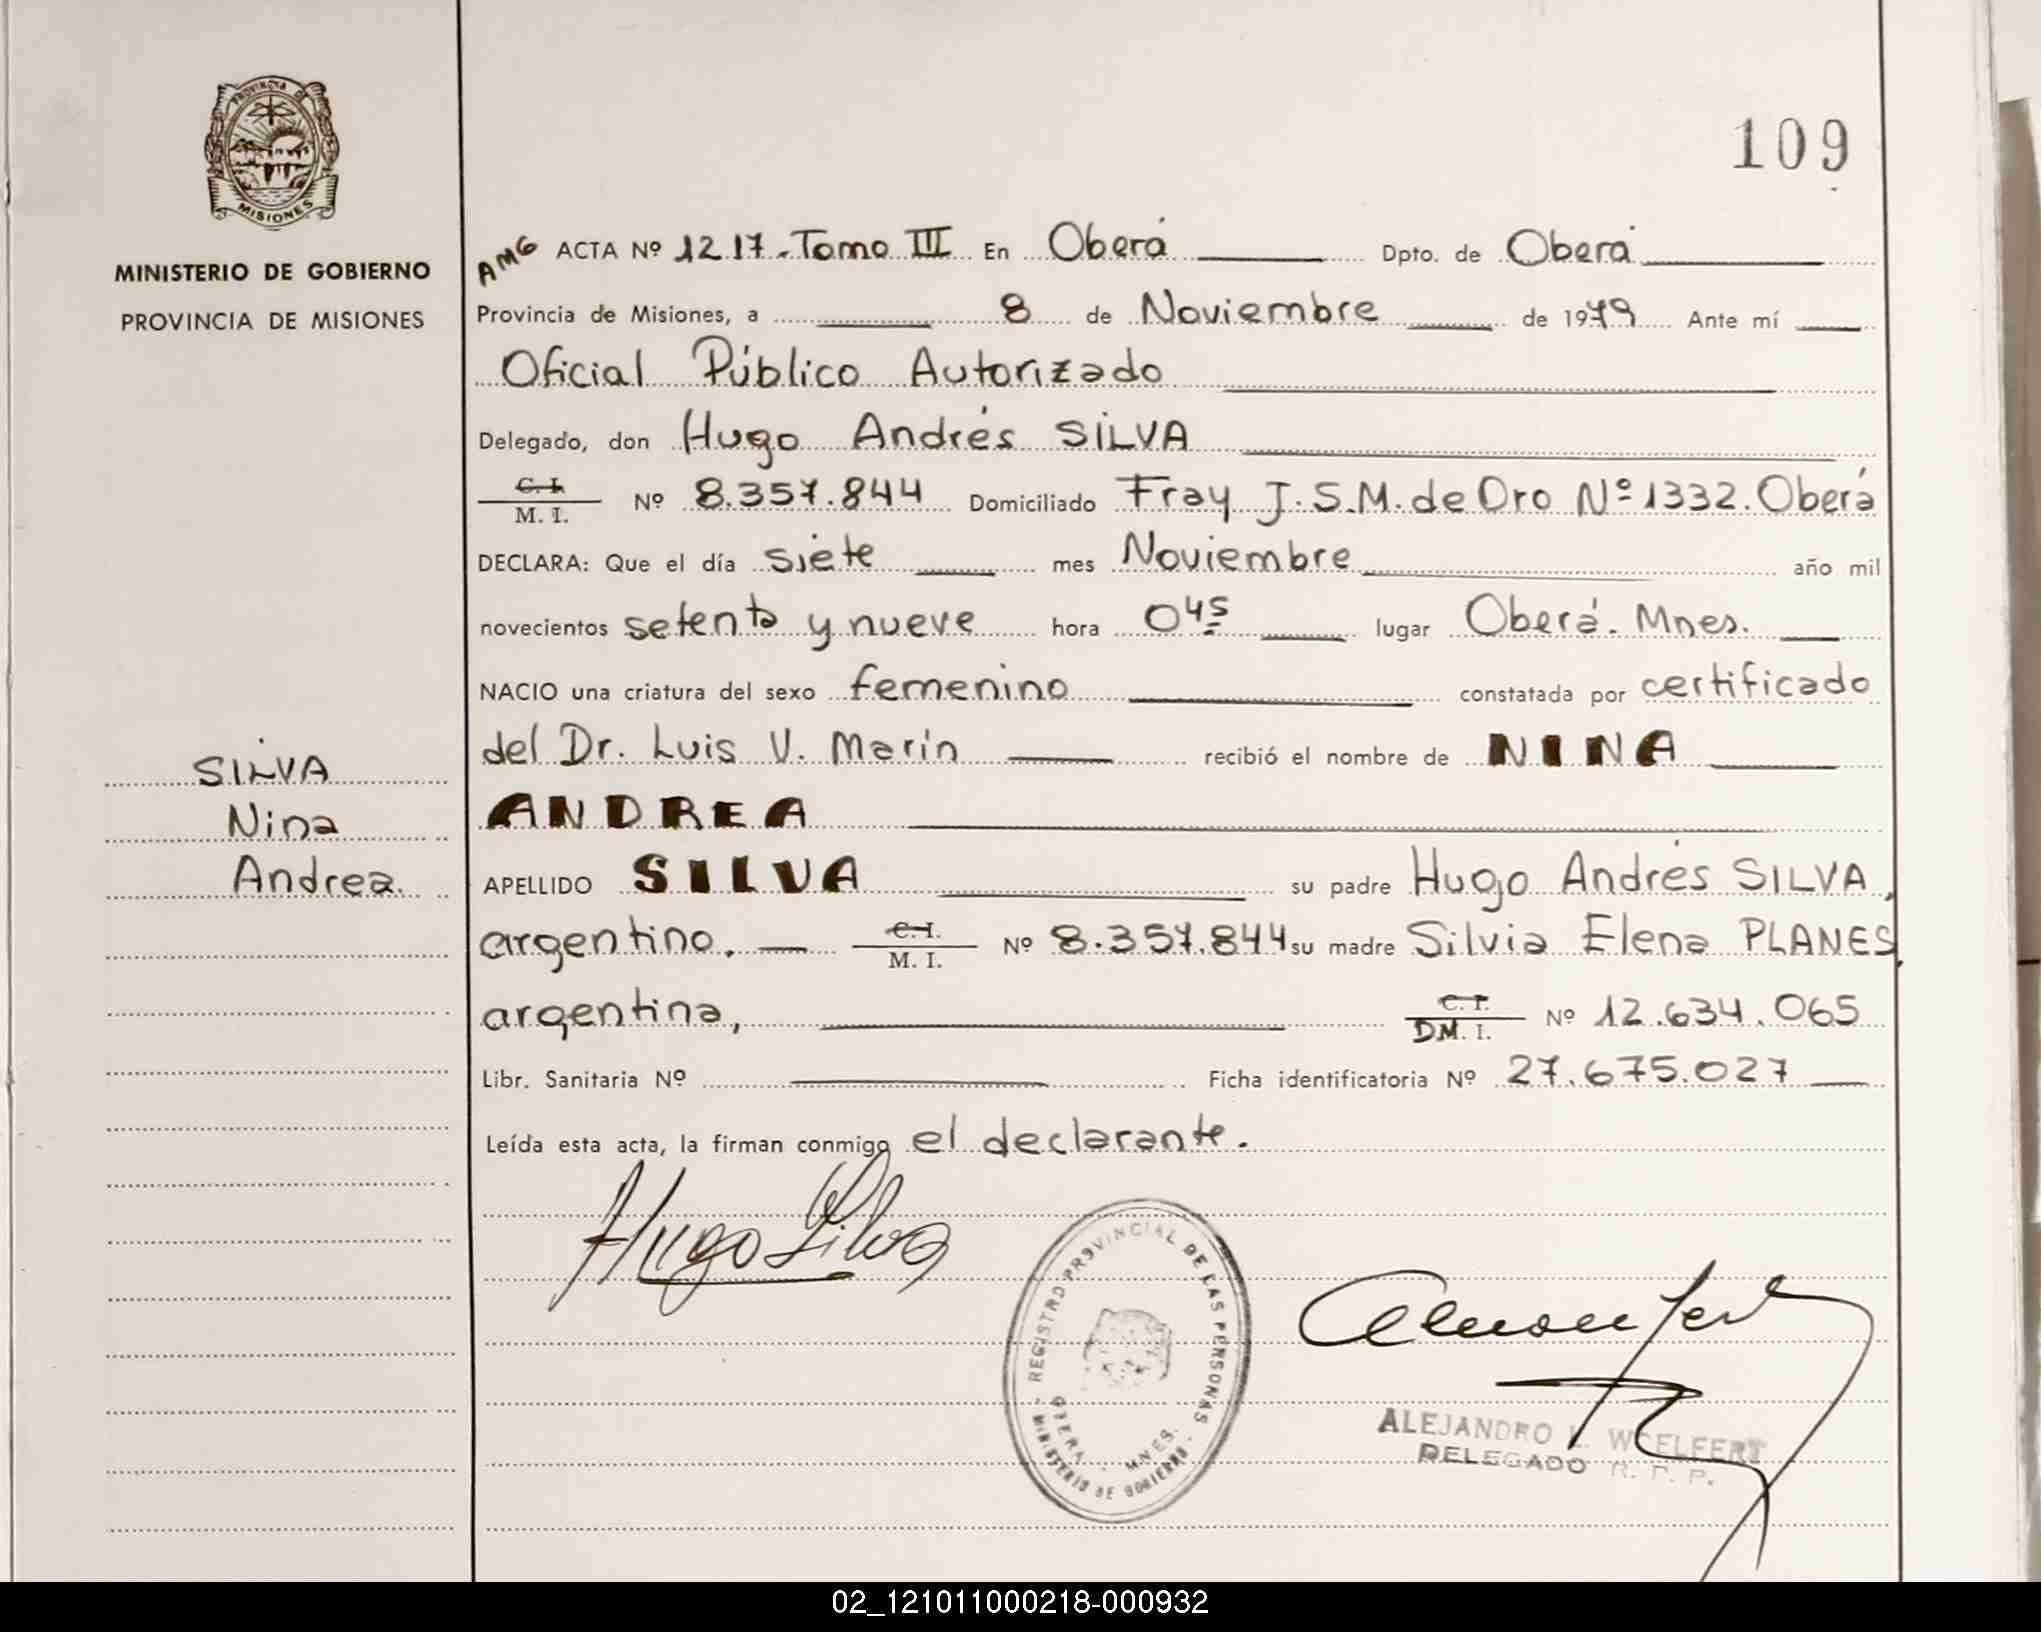 PROVINCIA DE
MISIONES
MINISTERIO DE GOBIERNO
PROVINCIA DE MISIONES
109
AMG ACTA Nº 1217.-Tomo III En Oberá Dpto. de Oberá
Provincia de Misiones, a 8 de Noviembre de 1979 Ante mí
Oficial Público Autorizado
Delegado, don Hugo Andrés SILVA
C. I.
M. I. Nº 8.357.844 Domiciliado Fray J.S.M. de Oro Nº 1332. Oberá
DECLARA: Que el día siete mes Noviembre año mil
novecientos setenta y nueve hora 0 45 lugar Oberá. Mnes.
NACIO una criatura del sexo femenino constatada por certificado
del Dr. Luis V. Marín recibió el nombre de NINA
ANDREA
APELLIDO SILVA su padre Hugo Andrés SILVA,
argentino, C. I.
M. I. Nº 8.357.844 su madre Silvia Elena PLANES,
argentina, C. I.
DM. I. Nº 12.634.065
Libr. Sanitaria Nº Ficha identificatoria Nº 27.675.027
Leída esta acta, la firman conmigo el declarante.
SILVA
Nina
Andrea.
Hugo Silva
REGISTRO PROVINCIAL DE LAS PERSONAS
OBERA - MNES.
MINISTERIO DE GOBIERNO
ALEJANDRO L. WOELFERT
DELEGADO R. P. P.
02_121011000218-000932